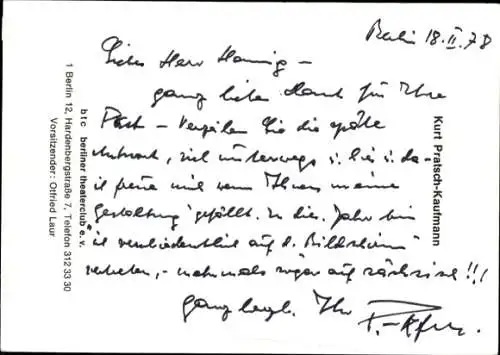 Berlin 18.II.78
Lieber Herr Hennig –
ganz lieben Dank für Ihre
Post – Verzeihen Sie die späte
Antwort, viel unterwegs
ich freue mich wenn Ihnen meine
Gestaltung gefällt. In dies. Jahr bin
ich verschiedentlich auf d. Bildschirm
vertreten, – nochmals sogar auf sächsisch!!!
ganz herzl. Ihr
Kurt Pratsch-Kaufmann
btc berliner theaterclub e.v.
1 Berlin 12, Hardenbergstraße 7, Telefon 312 33 30
Vorsitzender: Otfried Laur